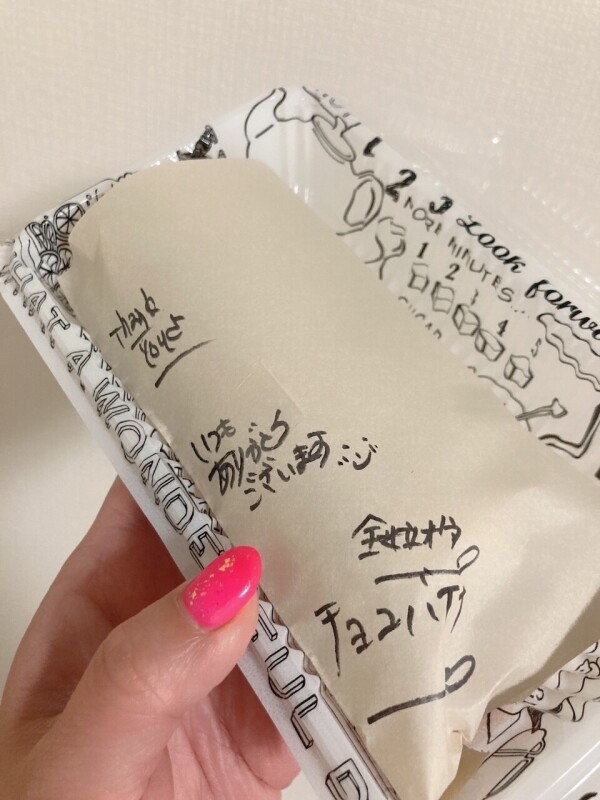 1 2 3 Look forw
MORE MINUTES...
1 2 3 4 5
SUGAR
Thank
you
いつも
ありがとう
ございます :)
全粒粉
HAT A WONDE
FUL D